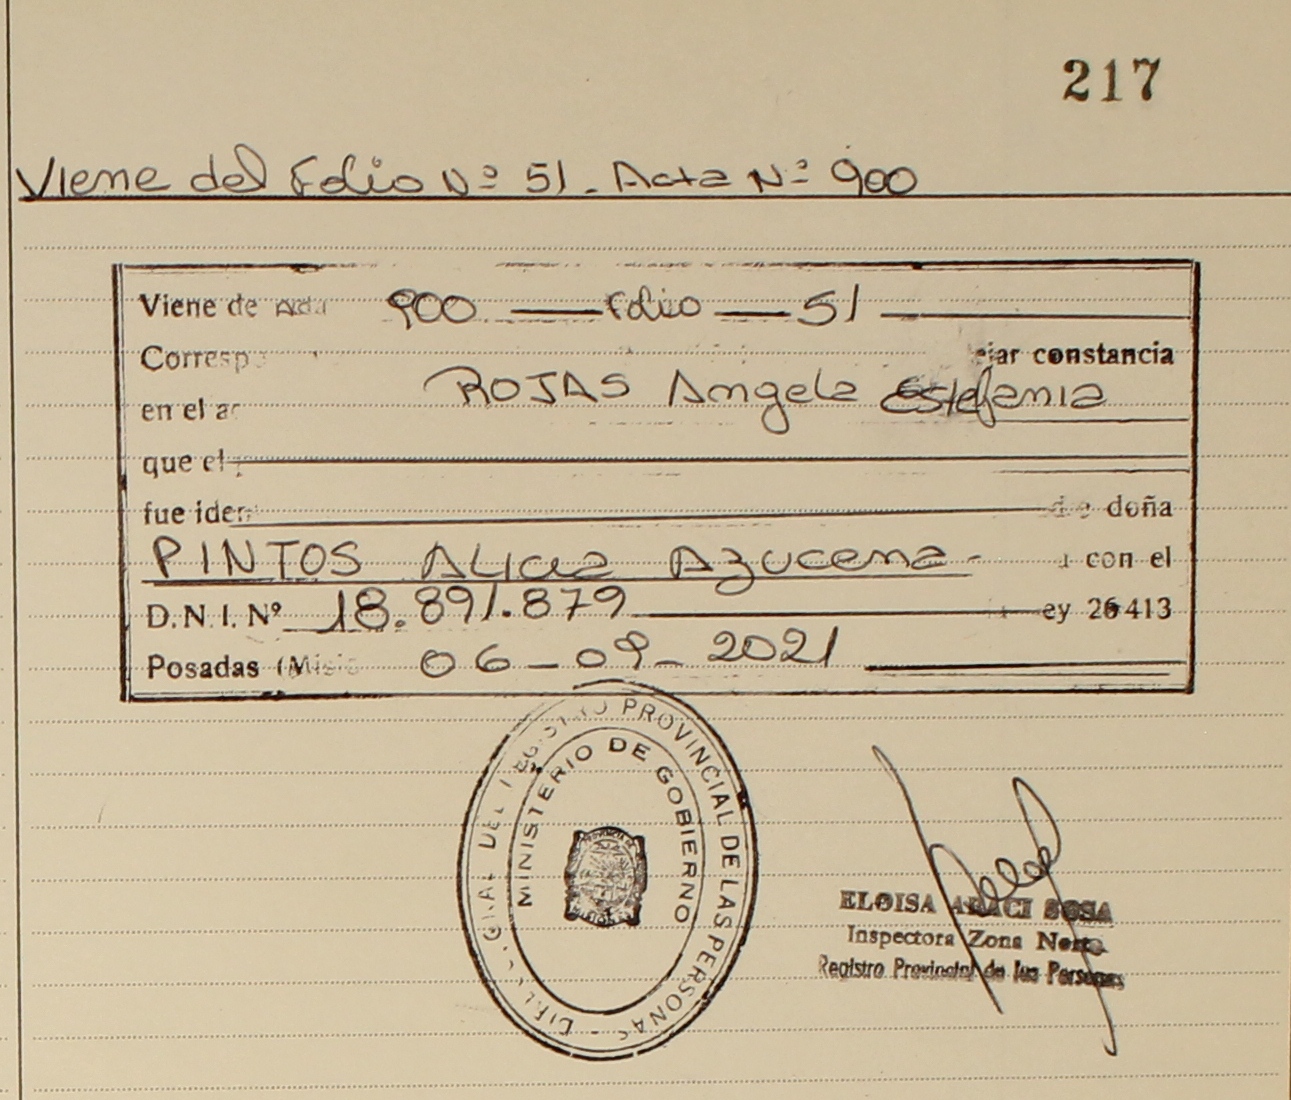 217
Viene del Folio Nº 51. Acta Nº 900
Viene de Acta 900 — Folio — 51
Corresp ejar constancia
en el ac ROJAS Angela Estefania
que el
fue iden de doña
PINTOS Alicia Azucena - con el
D.N.I. Nº 18.891.879 ey 26413
Posadas (Misio 06-09-2021
PROVINCIAL DE LAS PERSONAS
MINISTERIO DE GOBIERNO
ELOISA ARACI SOSA
Inspectora Zona Norte
Registro Provincial de las Personas